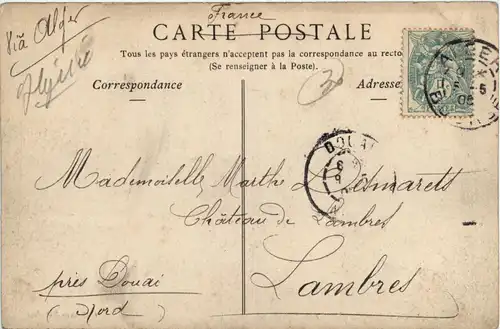 France
Viâ Alger
Algérie
CARTE POSTALE
Tous les pays étrangers n'acceptent pas la correspondance au recto
(Se renseigner à la Poste).
Correspondance
Adresse
30
DOUAI
Mademoiselle Marthe Desmarets
Château de Lambres
près Douai
Lambres
(Nord)